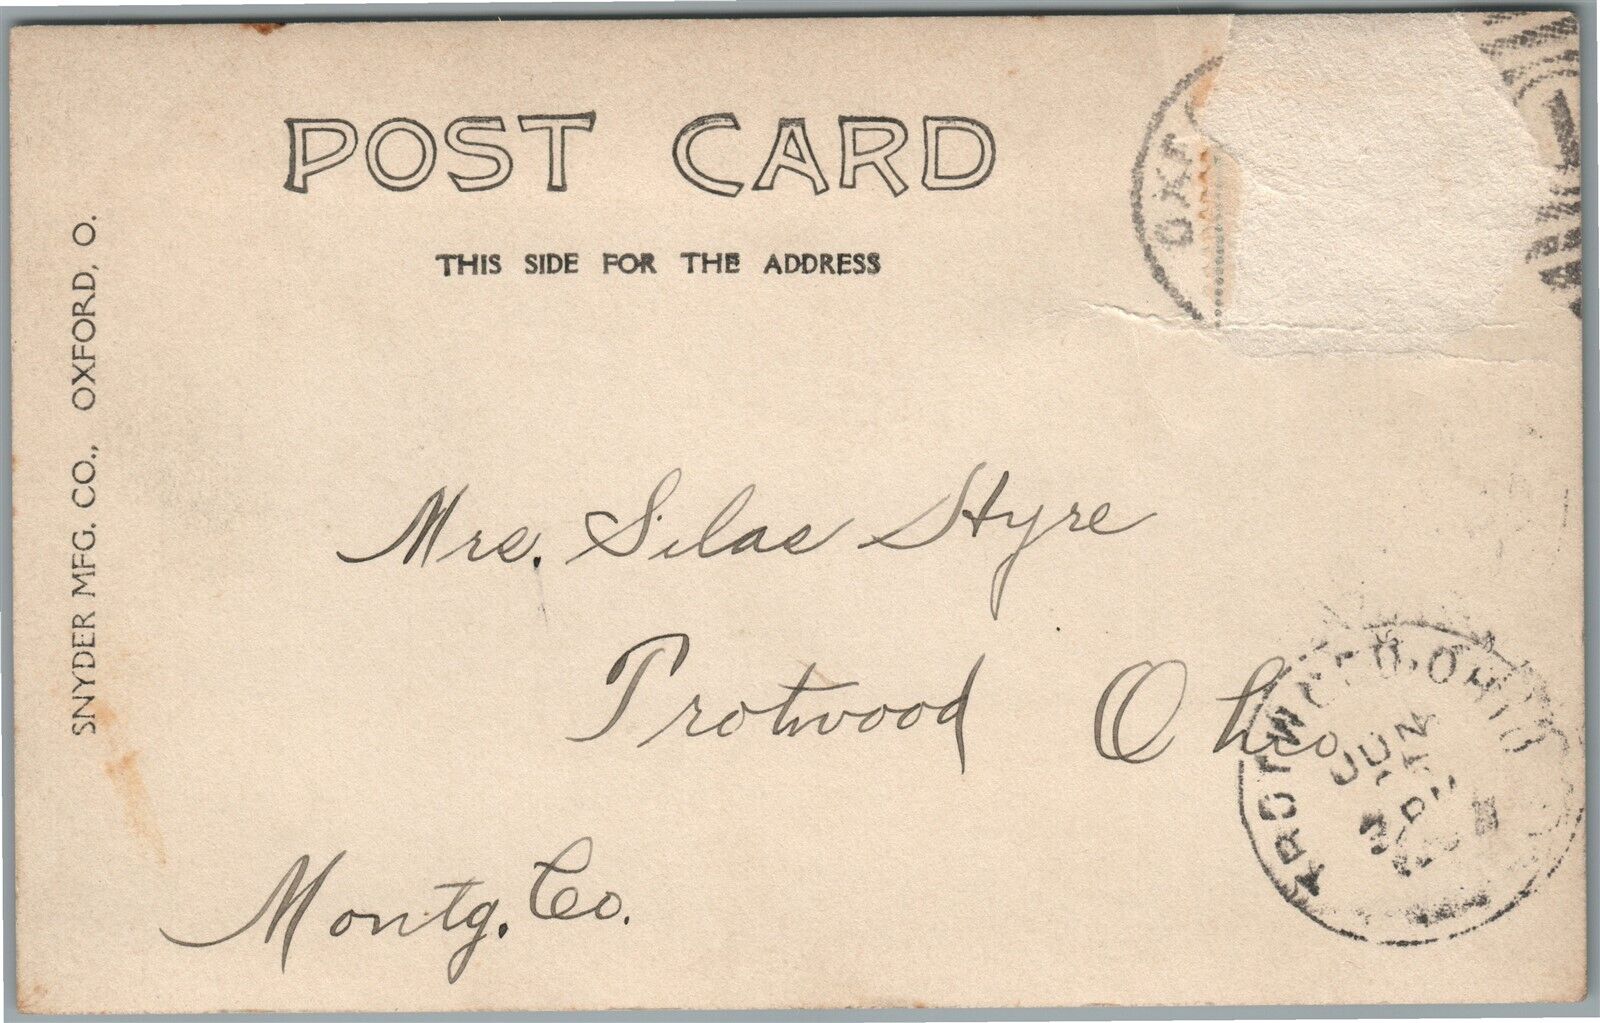 POST CARD
THIS SIDE FOR THE ADDRESS
SNYDER MFG. CO., OXFORD, O.
Mrs. Silas Styre
Trotwood Ohio
Montg. Co.
TROTWOOD, OHIO
JUN